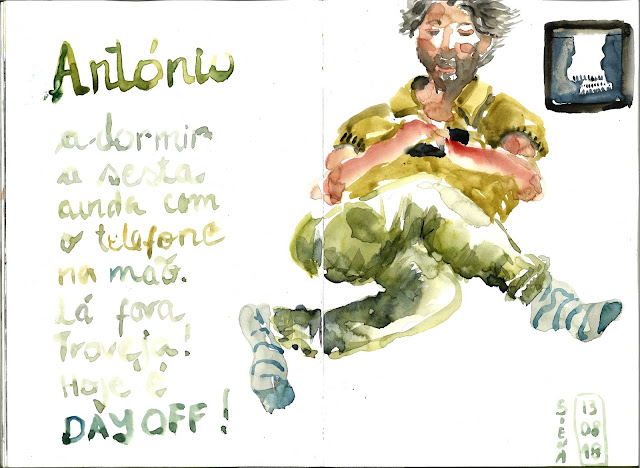 António
a dormir
a sesta
ainda com
o telefone
na mão.
Lá fora
Troveja!
Hoje é
DAY OFF!
SIENA
13
08
18